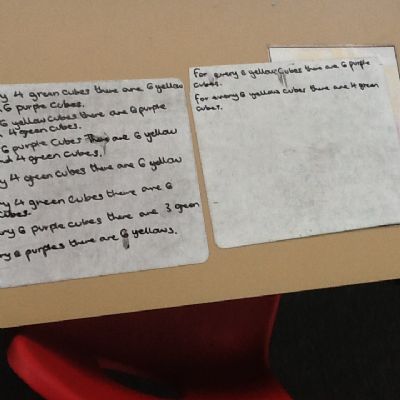 y 4 green cubes there are 6 yellow
6 purple cubes.
6 yellow cubes there are 6 purple
4 green cubes.
6 purple cubes there are 6 yellow
nd 4 green cubes.
y 4 green cubes there are 6 yellow
y 4 green cubes there are 6
cubes.
ry 6 purple cubes there are 3 green
ry 6 purples there are 6 yellows.
for every 6 yellow cubes there are 6 purple
cubes.
for every 6 yellows cubes there are 4 green
cubes.